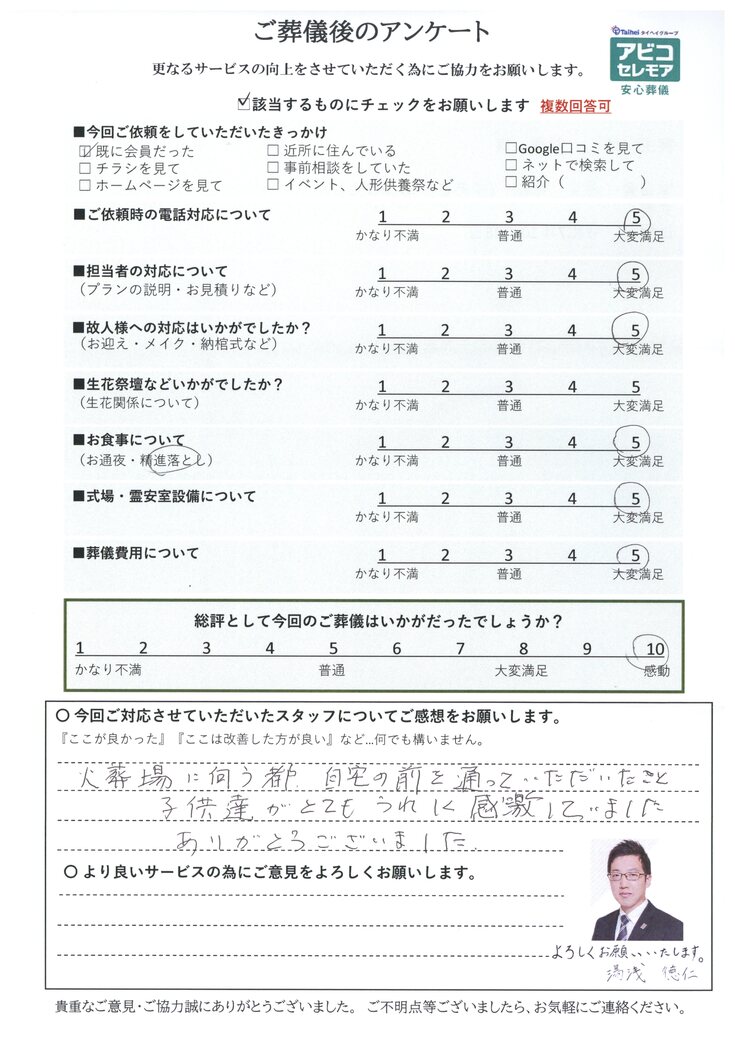 ご葬儀後のアンケート
Taihei タイヘイグループ
アビコ
セレモア
安心葬儀
更なるサービスの向上をさせていただく為にご協力をお願いします。
☑該当するものにチェックをお願いします 複数回答可
■今回ご依頼をしていただいたきっかけ
☑既に会員だった □近所に住んでいる □Google口コミを見て
□チラシを見て □事前相談をしていた □ネットで検索して
□ホームページを見て □イベント、人形供養祭など □紹介（ ）
■ご依頼時の電話対応について 1 2 3 4 5
かなり不満 普通 大変満足
■担当者の対応について 1 2 3 4 5
（プランの説明・お見積りなど） かなり不満 普通 大変満足
■故人様への対応はいかがでしたか？ 1 2 3 4 5
（お迎え・メイク・納棺式など） かなり不満 普通 大変満足
■生花祭壇などいかがでしたか？ 1 2 3 4 5
（生花関係について） かなり不満 普通 大変満足
■お食事について 1 2 3 4 5
（お通夜・精進落とし） かなり不満 普通 大変満足
■式場・霊安室設備について 1 2 3 4 5
かなり不満 普通 大変満足
■葬儀費用について 1 2 3 4 5
かなり不満 普通 大変満足
総評として今回のご葬儀はいかがだったでしょうか？
1 2 3 4 5 6 7 8 9 10
かなり不満 普通 大変満足 感動
〇 今回ご対応させていただいたスタッフについてご感想をお願いします。
『ここが良かった』『ここは改善した方が良い』など…何でも構いません。
火葬場に向う都、自宅の前を通っていただいたこと
子供達がとてもうれしく感激していました
ありがとうございました。
〇 より良いサービスの為にご意見をよろしくお願いします。
よろしくお願いいたします。
湯浅 徳仁
貴重なご意見・ご協力誠にありがとうございました。 ご不明点等ございましたら、お気軽にご連絡ください。